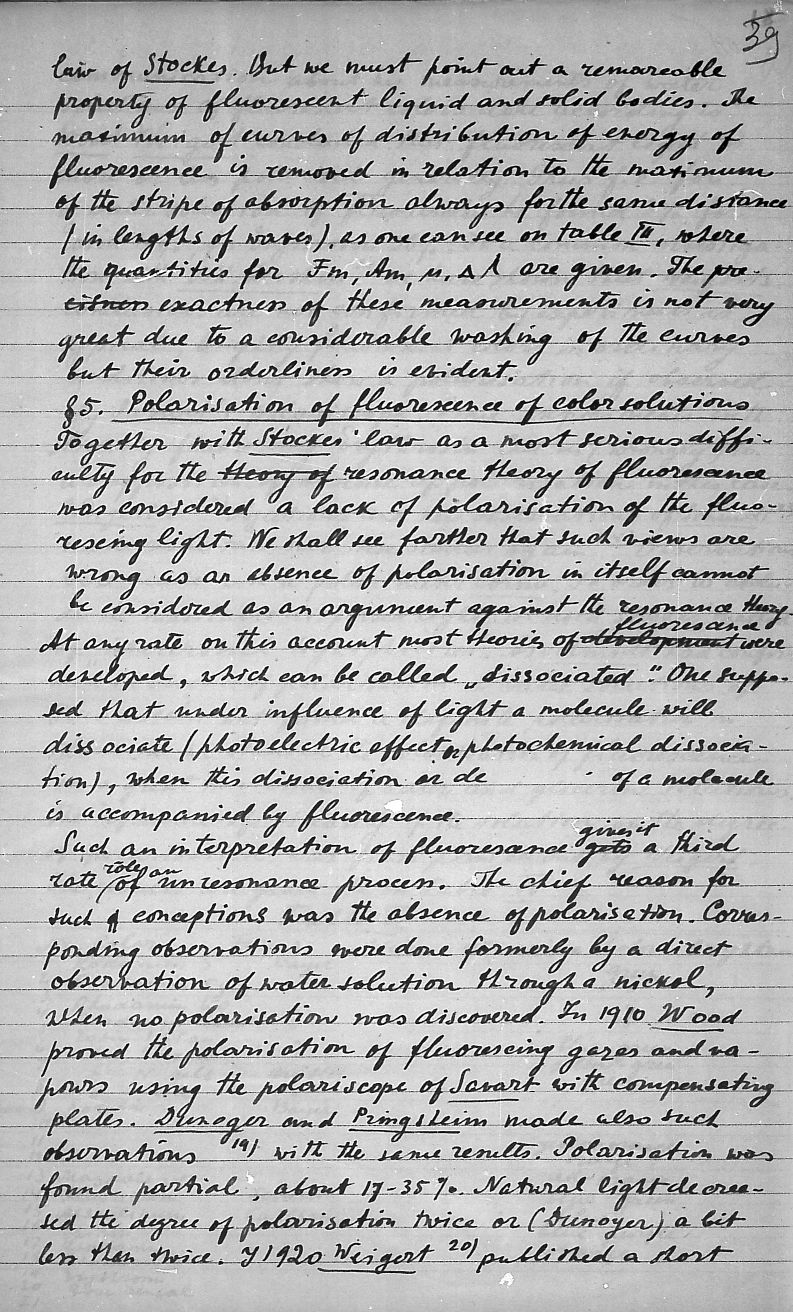 39
law of Stockes. But we must point out a remarcable
property of fluorescent liquid and solid bodies. The
maximum of curves of distribution of energy of
fluorescence is removed in relation to the maximum
of the stripe of absorption always for the same distance
(in lengths of waves), as one can see on table III, where
the quantities for Fm, Am, μ, Δ λ are given. The pre-
cisness exactness of these measurements is not very
great due to a considerable washing of the curves
but their orderliness is evident.
§5. Polarisation of fluorescence of color solutions
Together with Stockes' law as a most serious diffi-
culty for the theory of resonance theory of fluorescence
was considered a lack of polarisation of the fluo-
rescing light. We shall see farther that such views are
wrong as an absence of polarisation in itself cannot
be considered as an argument against the resonance theory.
fluorescence
At any rate on this account most theories of development were
developed, which can be called „dissociated". One suppo-
sed that under influence of light a molecule will
dissociate (photoelectric effect or photochemical dissocia-
tion), when this dissociation or de of a molecule
is accompanied by fluorescence.
gives it
Such an interpretation of fluorescence gets a third
role an
rate of unresonance process. The chief reason for
such conceptions was the absence of polarisation. Corres-
ponding observations were done formerly by a direct
observation of water solution through a nickol,
when no polarisation was discovered. In 1910 Wood
proved the polarisation of fluorescing gazes and va-
pours using the polariscope of Savart with compensating
plates. Dunoyer and Pringsheim made also such
observations 19) with the same results. Polarisation was
found partial, about 17-35%. Natural light decrea-
sed the degree of polarisation twice or (Dunoyer) a bit
less than twice. Y 1920 Weigert 20) published a short